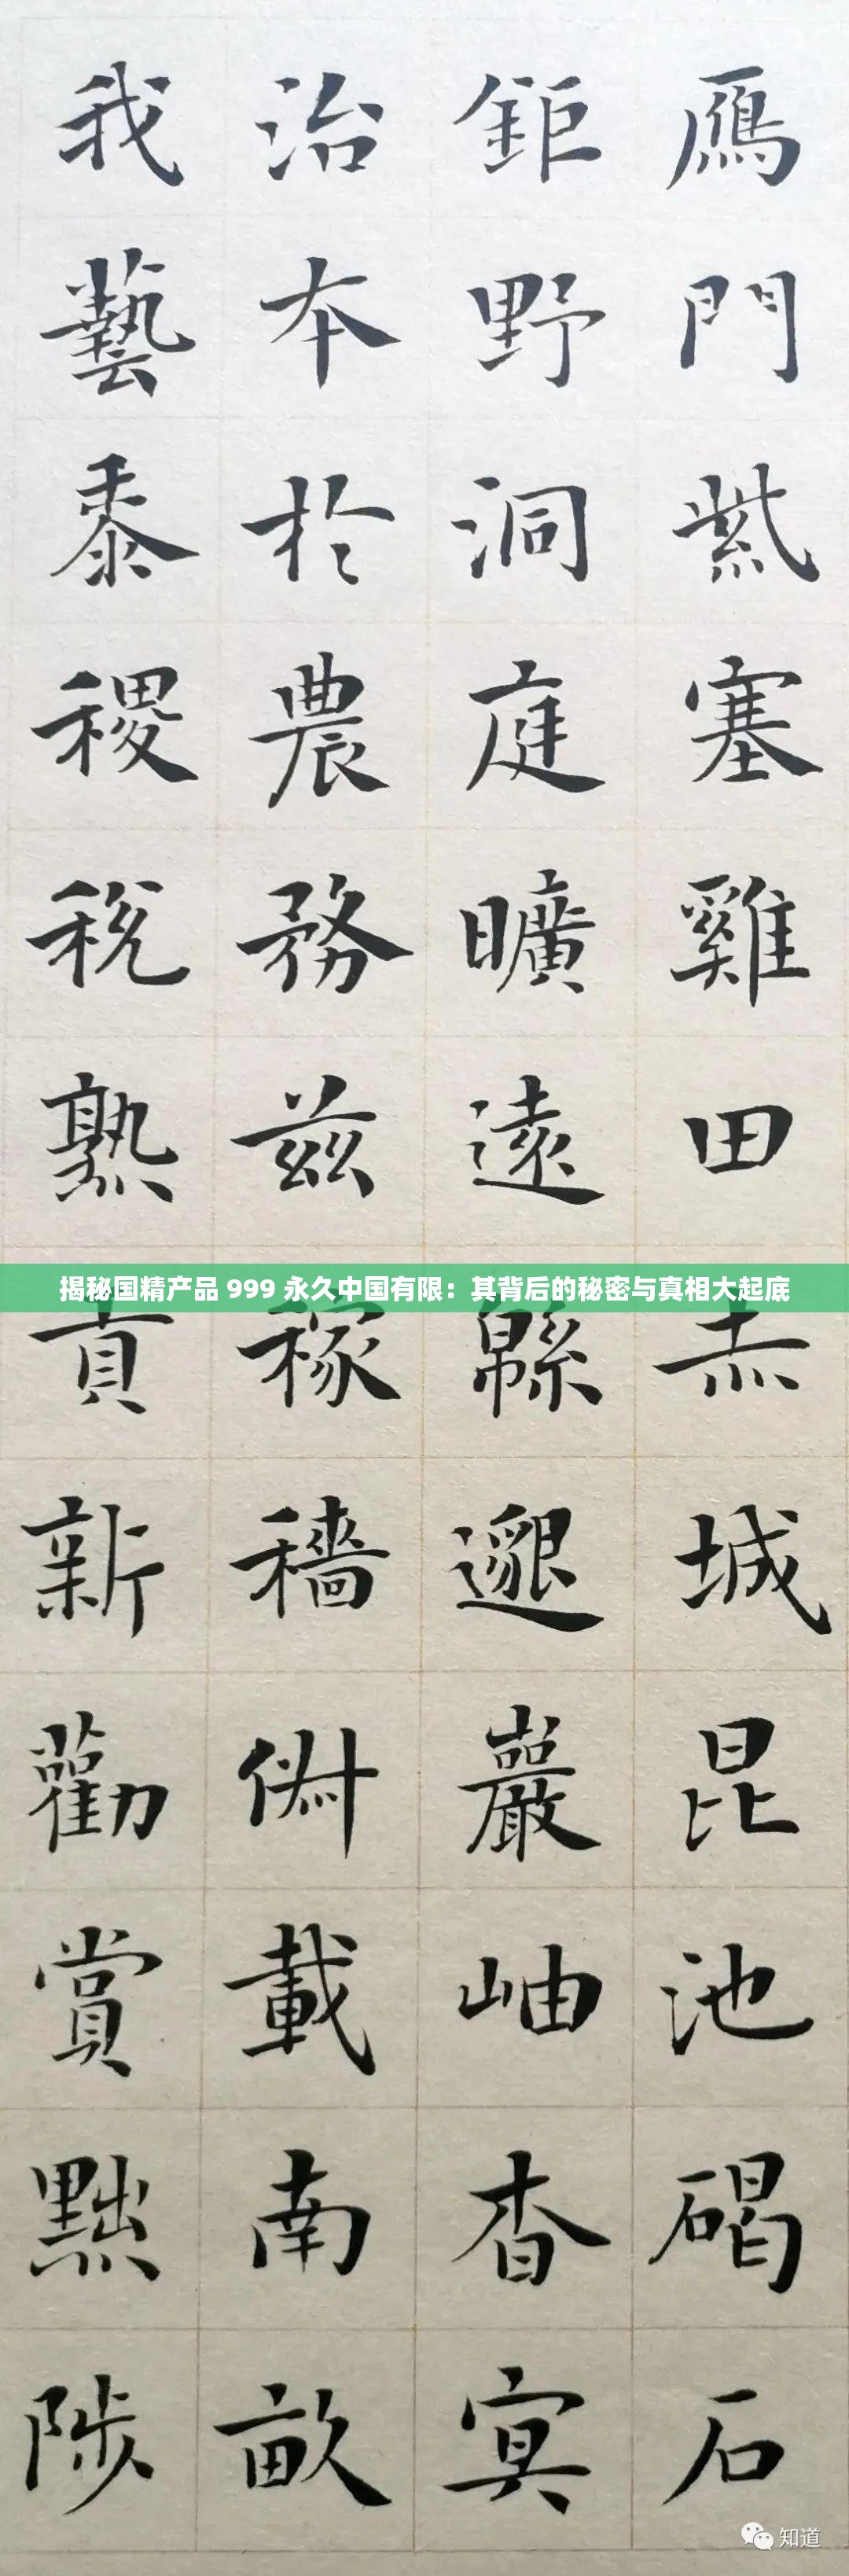 鴈門紫塞雞田赤城昆池碣石
鉅野洞庭曠遠緜邈巖岫杳冥
治本於農務茲稼穡俶載南畝
我藝黍稷稅熟貢新勸賞黜陟
揭秘国精产品 999 永久中国有限：其背后的秘密与真相大起底
知道